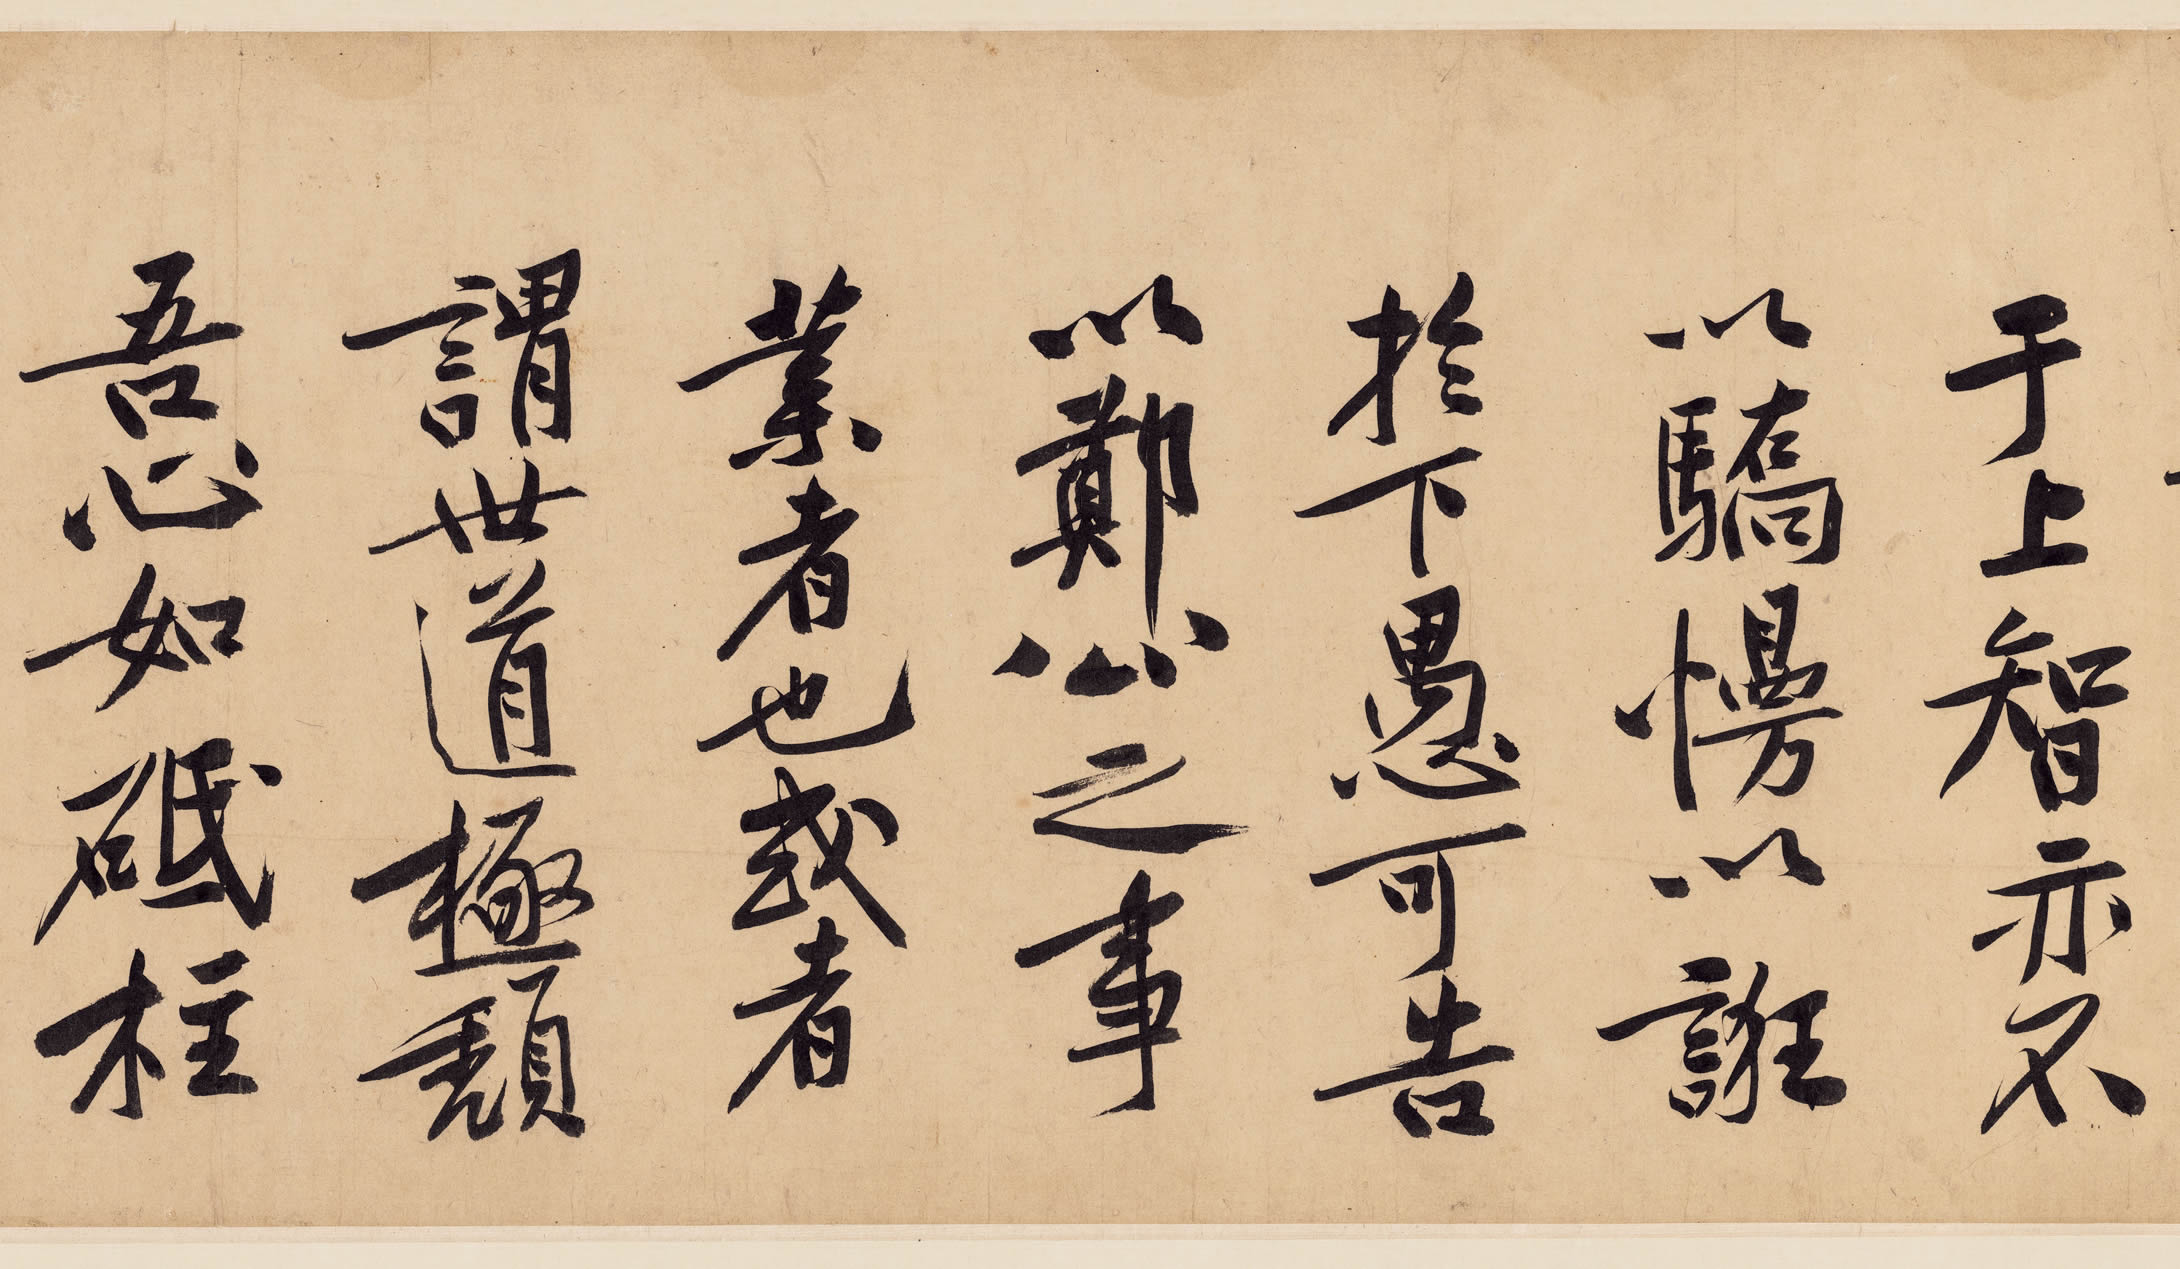 于上智亦不
以驕慢以誑
於下愚可告
以鄭公之事
業者也或者
謂世道極頹
吾心如砥柱